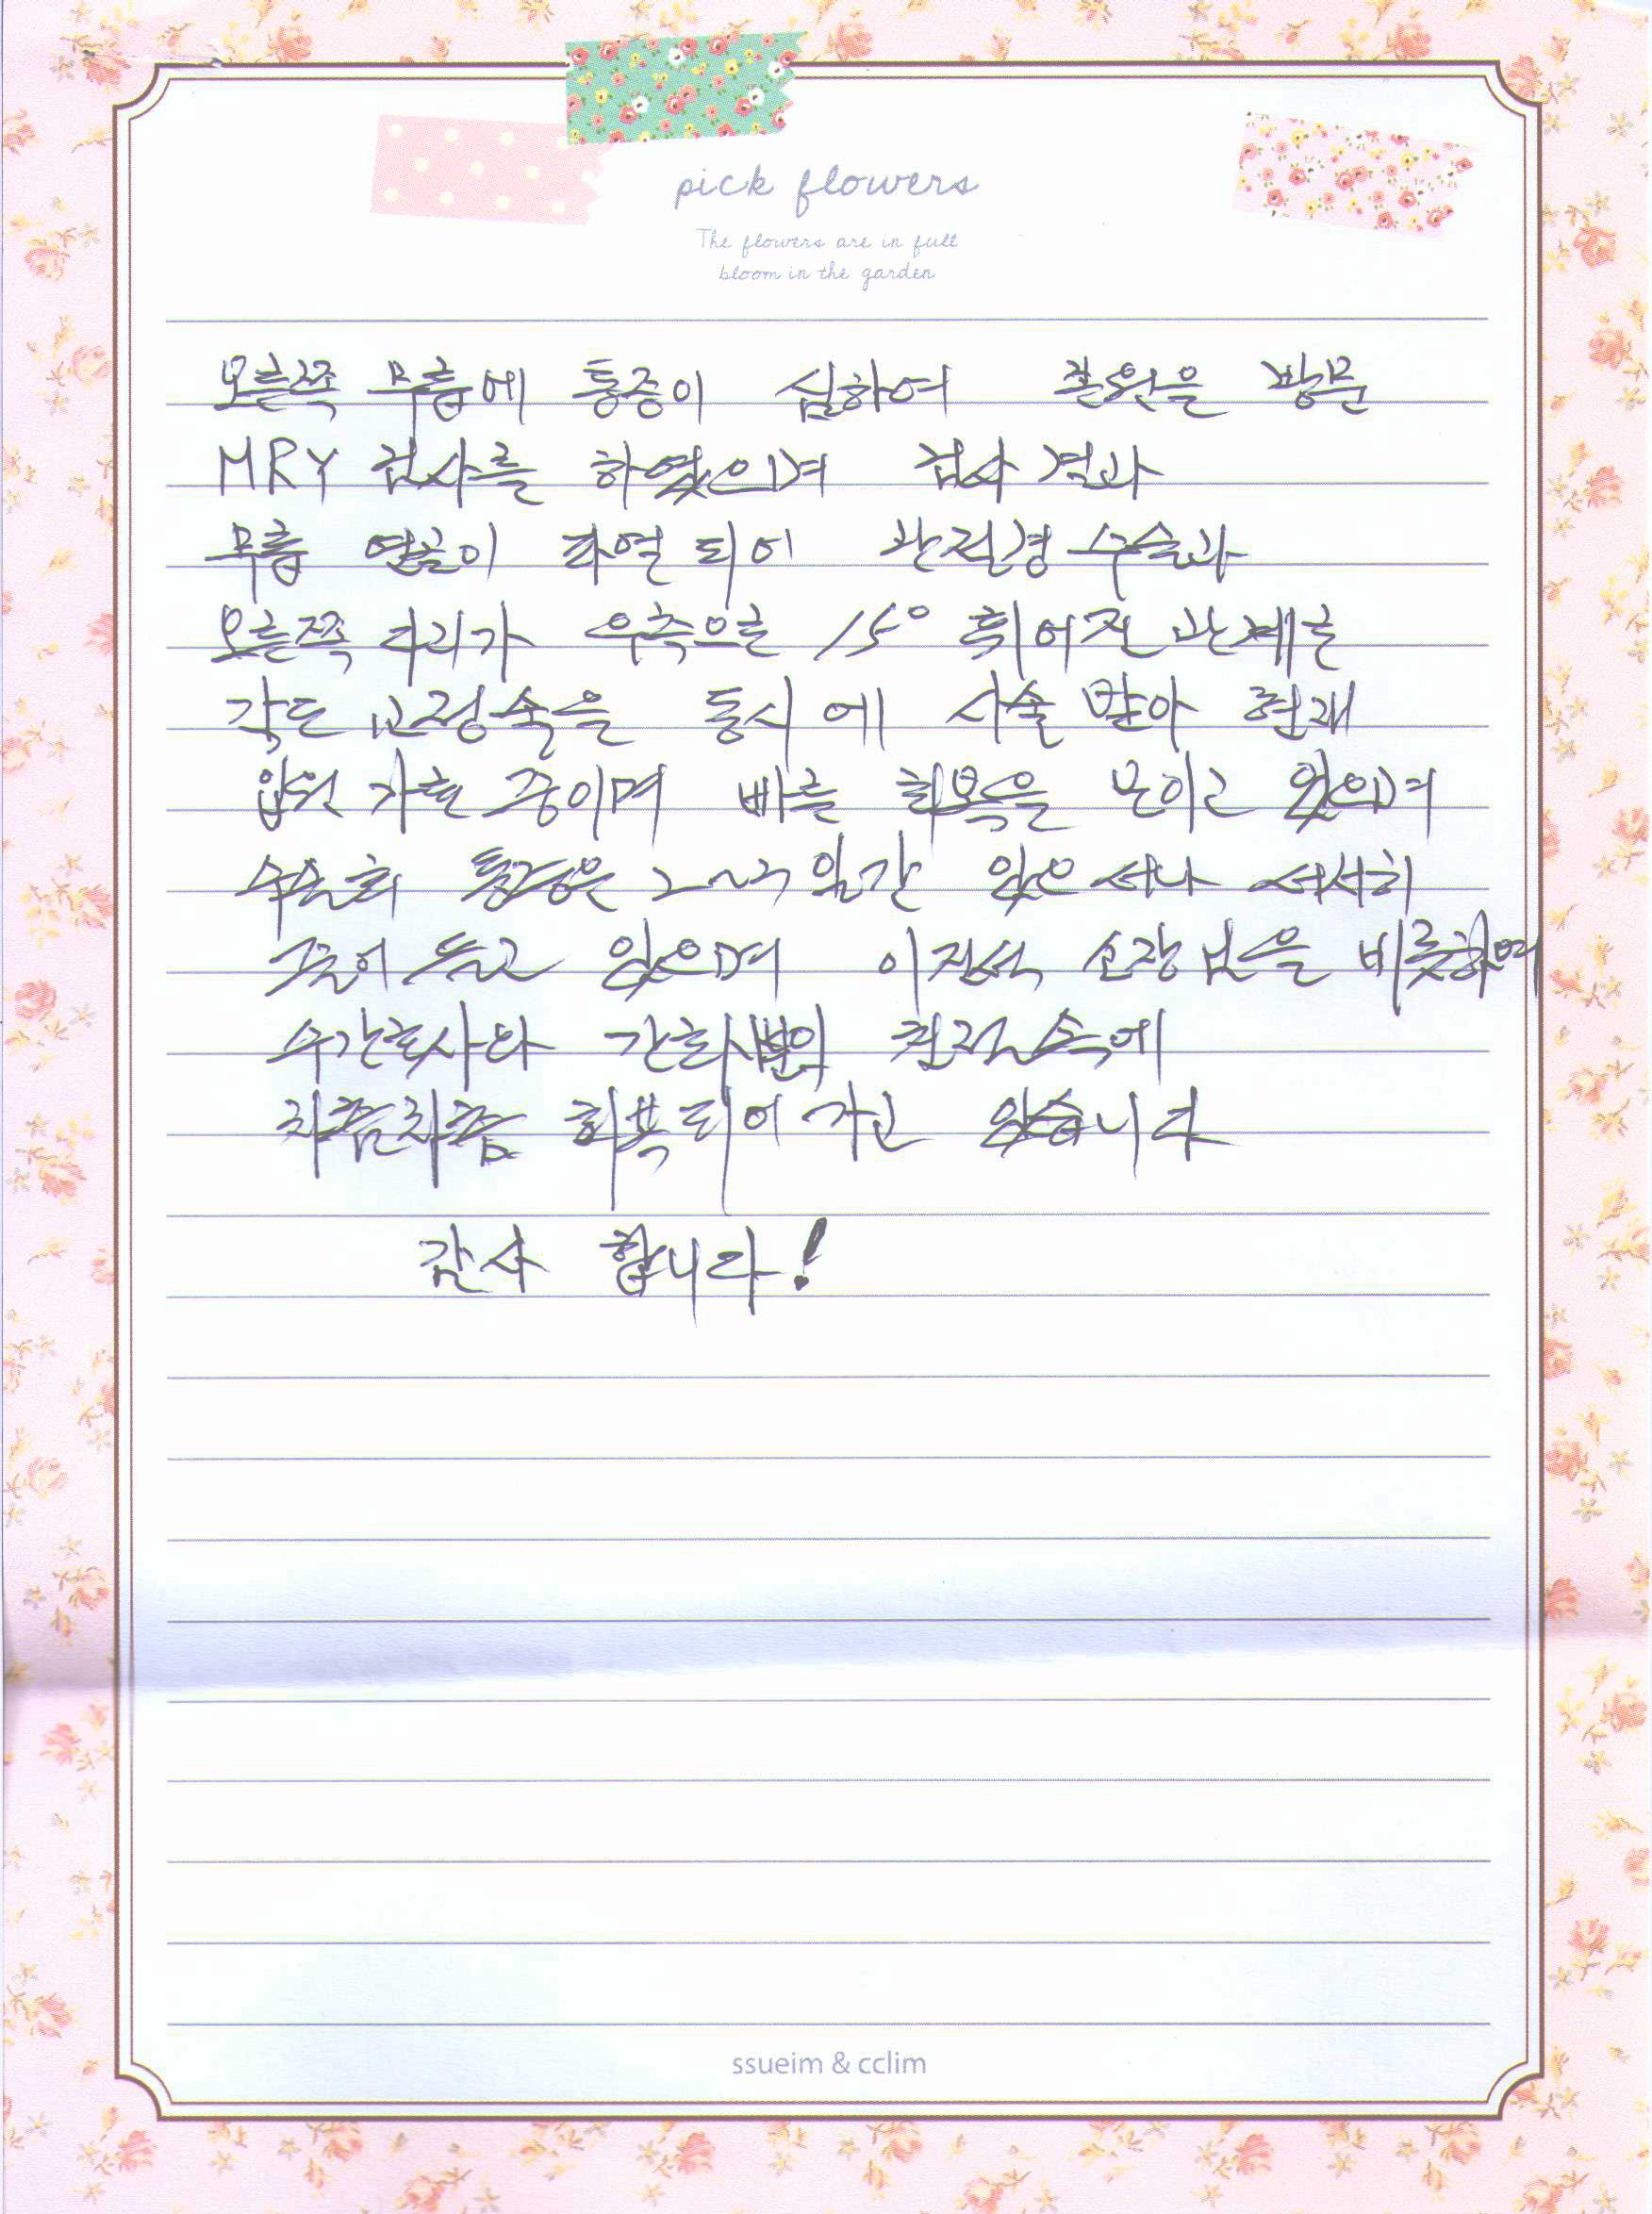 pick flowers
The flowers are in full
bloom in the garden
오른쪽 무릎에 통증이 심하여 본원을 방문
MRY 검사를 하였으며 검사 결과
무릎 연골이 파열 되어 관절경 수술과
오른쪽 다리가 우측으로 15° 휘어진 관계로
각도 교정술을 동시에 시술 받아 현재
입원 가료 중이며 빠른 회복을 보이고 있으며
수술후 통증은 2~3일간 있으나 서서히
줄어 들고 있으며 소장님을 비롯하여
수간호사와 간호사분의 친절속에
차츰차츰 회복되어 가고 있습니다
감사 합니다!
ssueim & cclim